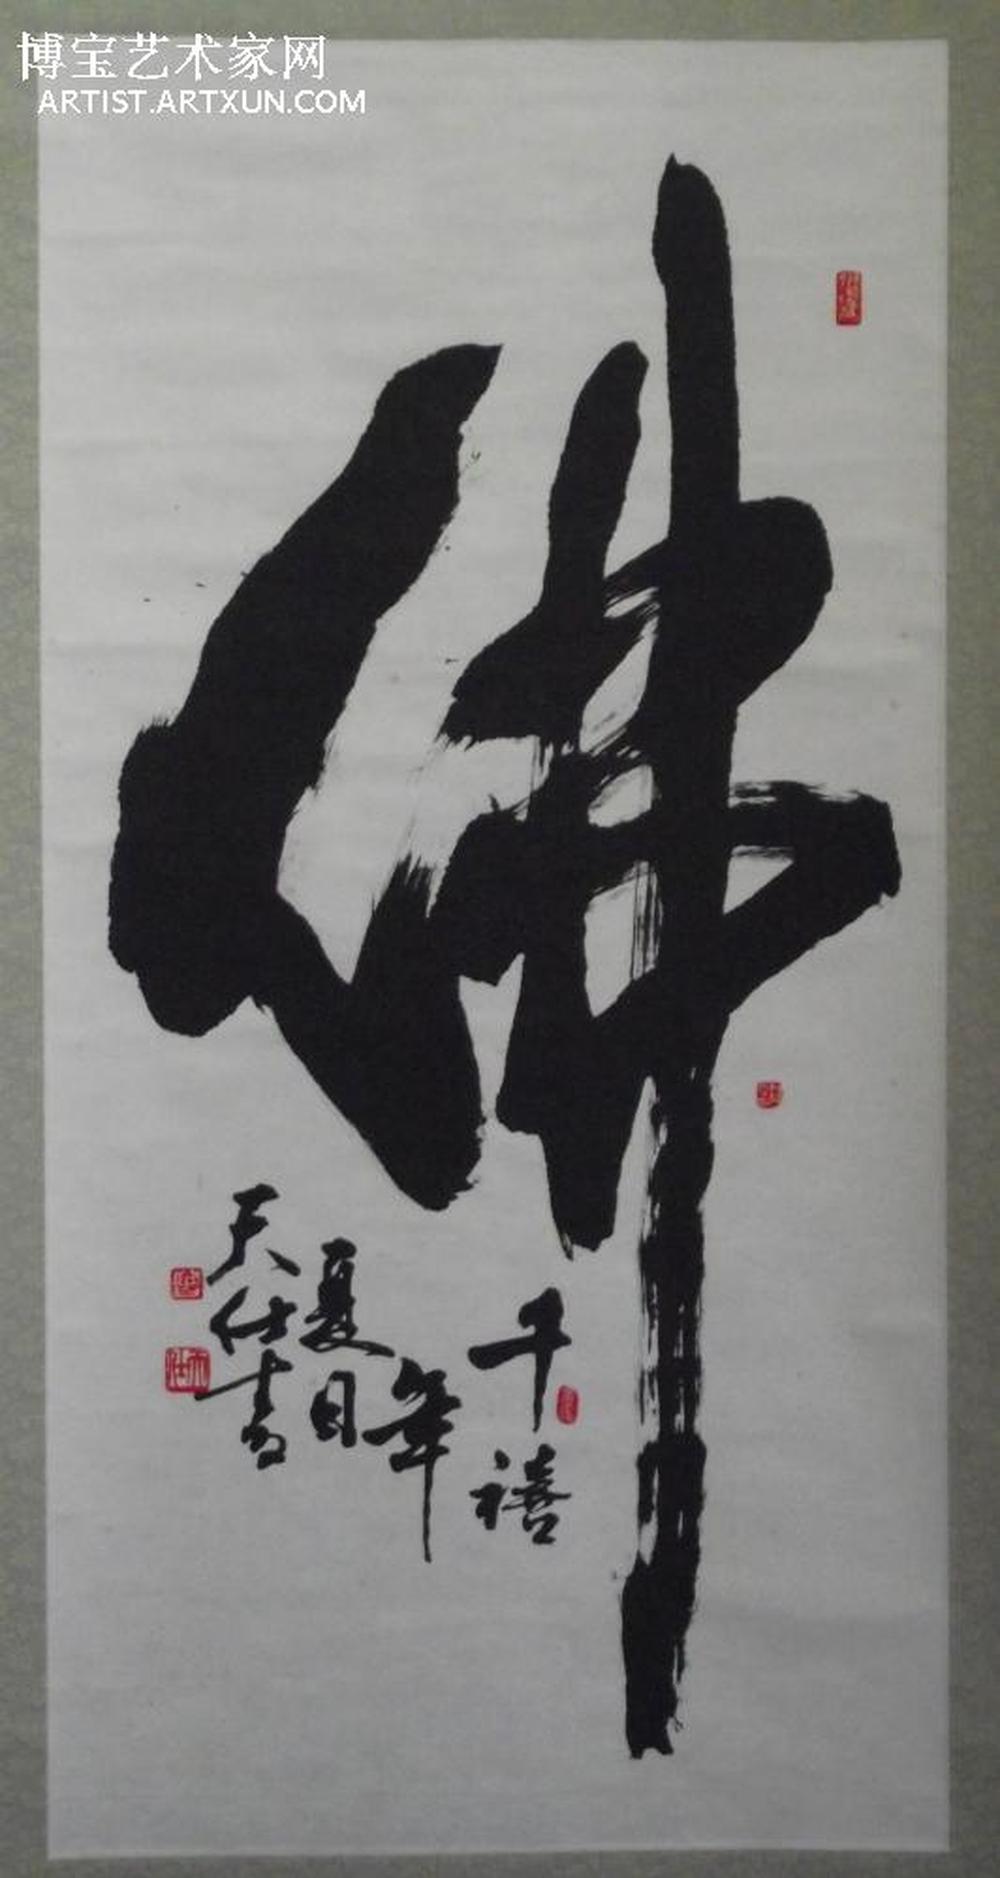 博宝艺术家网
ARTIST.ARTXUN.COM
佛
千禧
年
夏日
天仕書